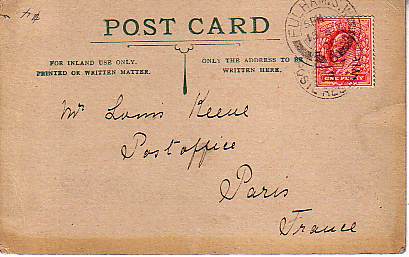 POST CARD
FOR INLAND USE ONLY. ONLY THE ADDRESS TO BE
PRINTED OR WRITTEN MATTER. WRITTEN HERE.
ONE PENNY
Mr Louis Keene
Postoffice
Paris
France